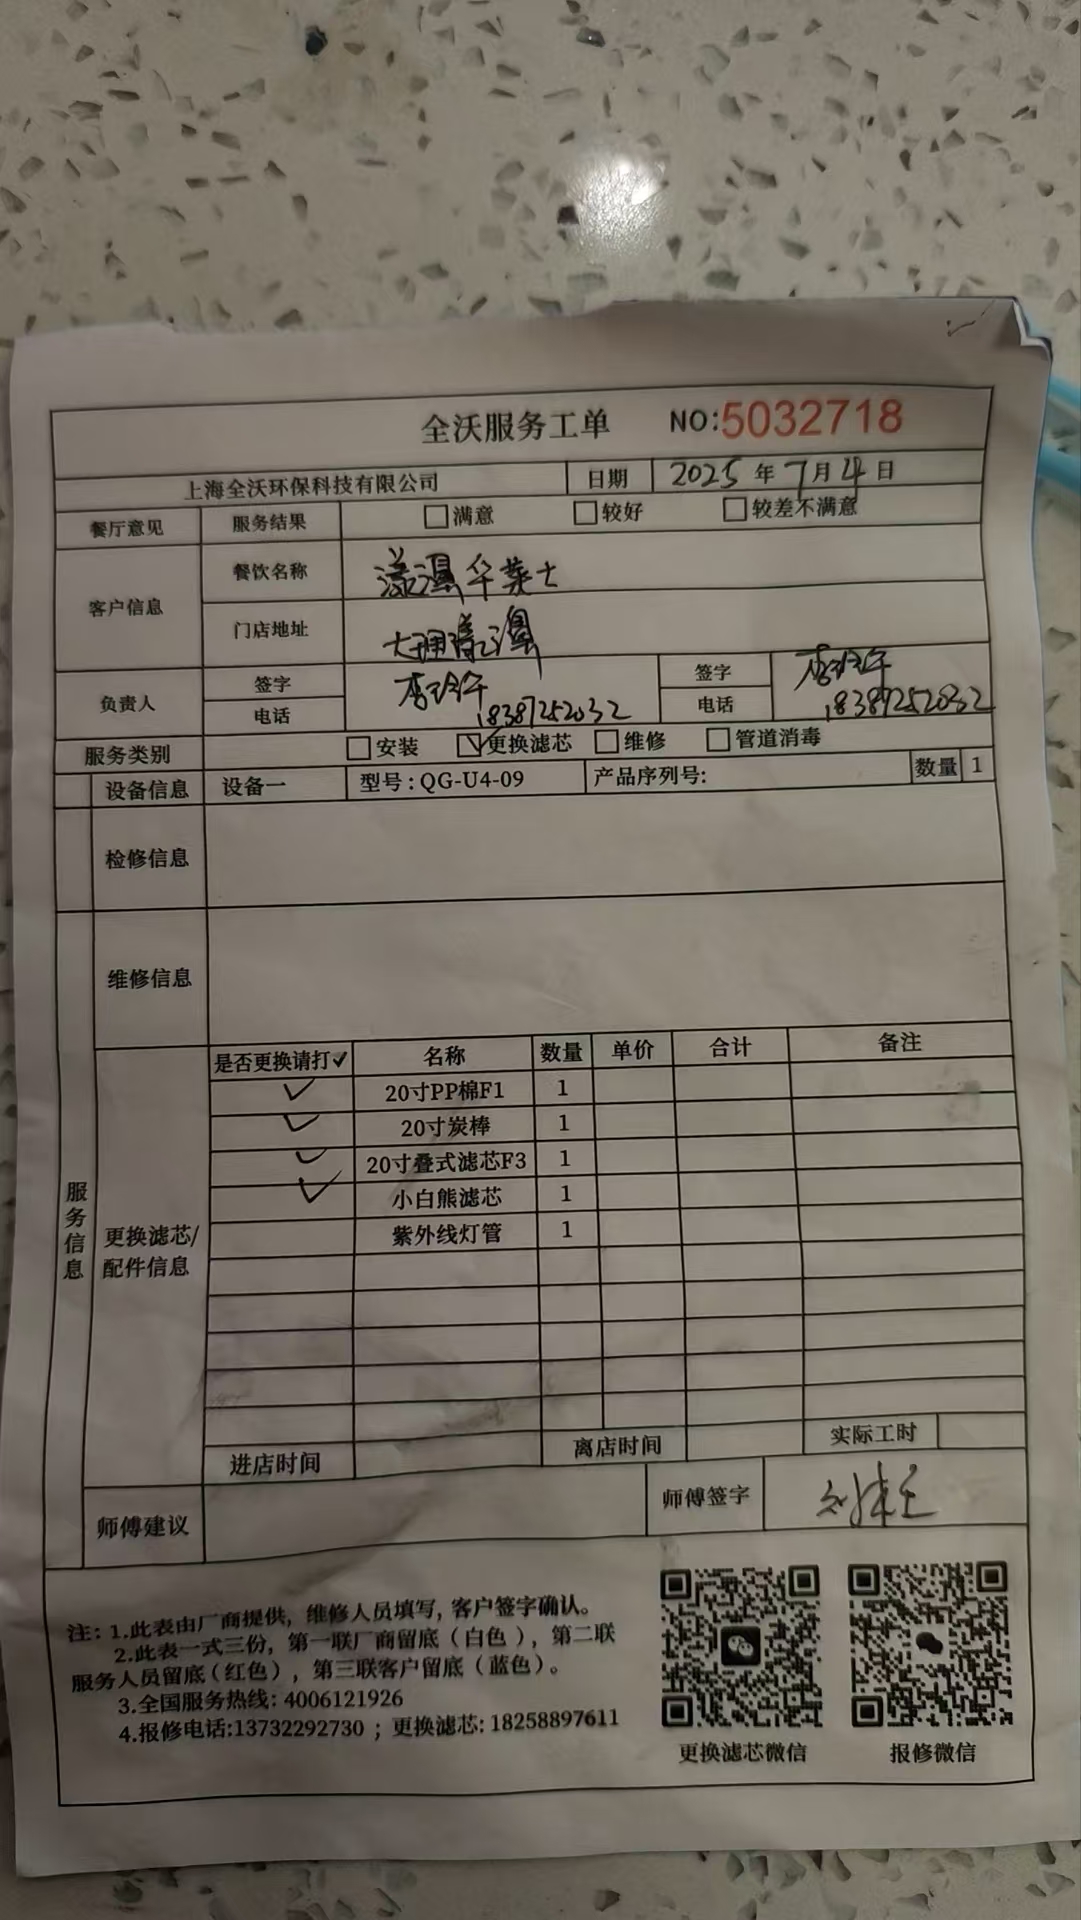 全沃服务工单 NO:5032718
上海全沃环保科技有限公司 日期 2025年7月4日
餐厅意见 服务结果 满意 较好 较差不满意
客户信息 餐饮名称 漾濞华莱士
门店地址 大理漾濞
负责人 签字 签字
电话 18387252032 电话 18387252032
服务类别 安装 更换滤芯 维修 管道消毒
设备信息 设备一 型号:QG-U4-09 产品序列号: 数量 1
检修信息
维修信息
服务信息
更换滤芯/配件信息
是否更换请打✓ 名称 数量 单价 合计 备注
✓ 20寸PP棉F1 1
✓ 20寸炭棒 1
✓ 20寸叠式滤芯F3 1
✓ 小白熊滤芯 1
紫外线灯管 1
进店时间 离店时间 实际工时
师傅建议 师傅签字
注: 1.此表由厂商提供, 维修人员填写, 客户签字确认。
2.此表一式三份, 第一联厂商留底(白色), 第二联
服务人员留底(红色), 第三联客户留底(蓝色)。
3.全国服务热线: 4006121926
4.报修电话:13732292730 ; 更换滤芯: 18258897611
更换滤芯微信 报修微信